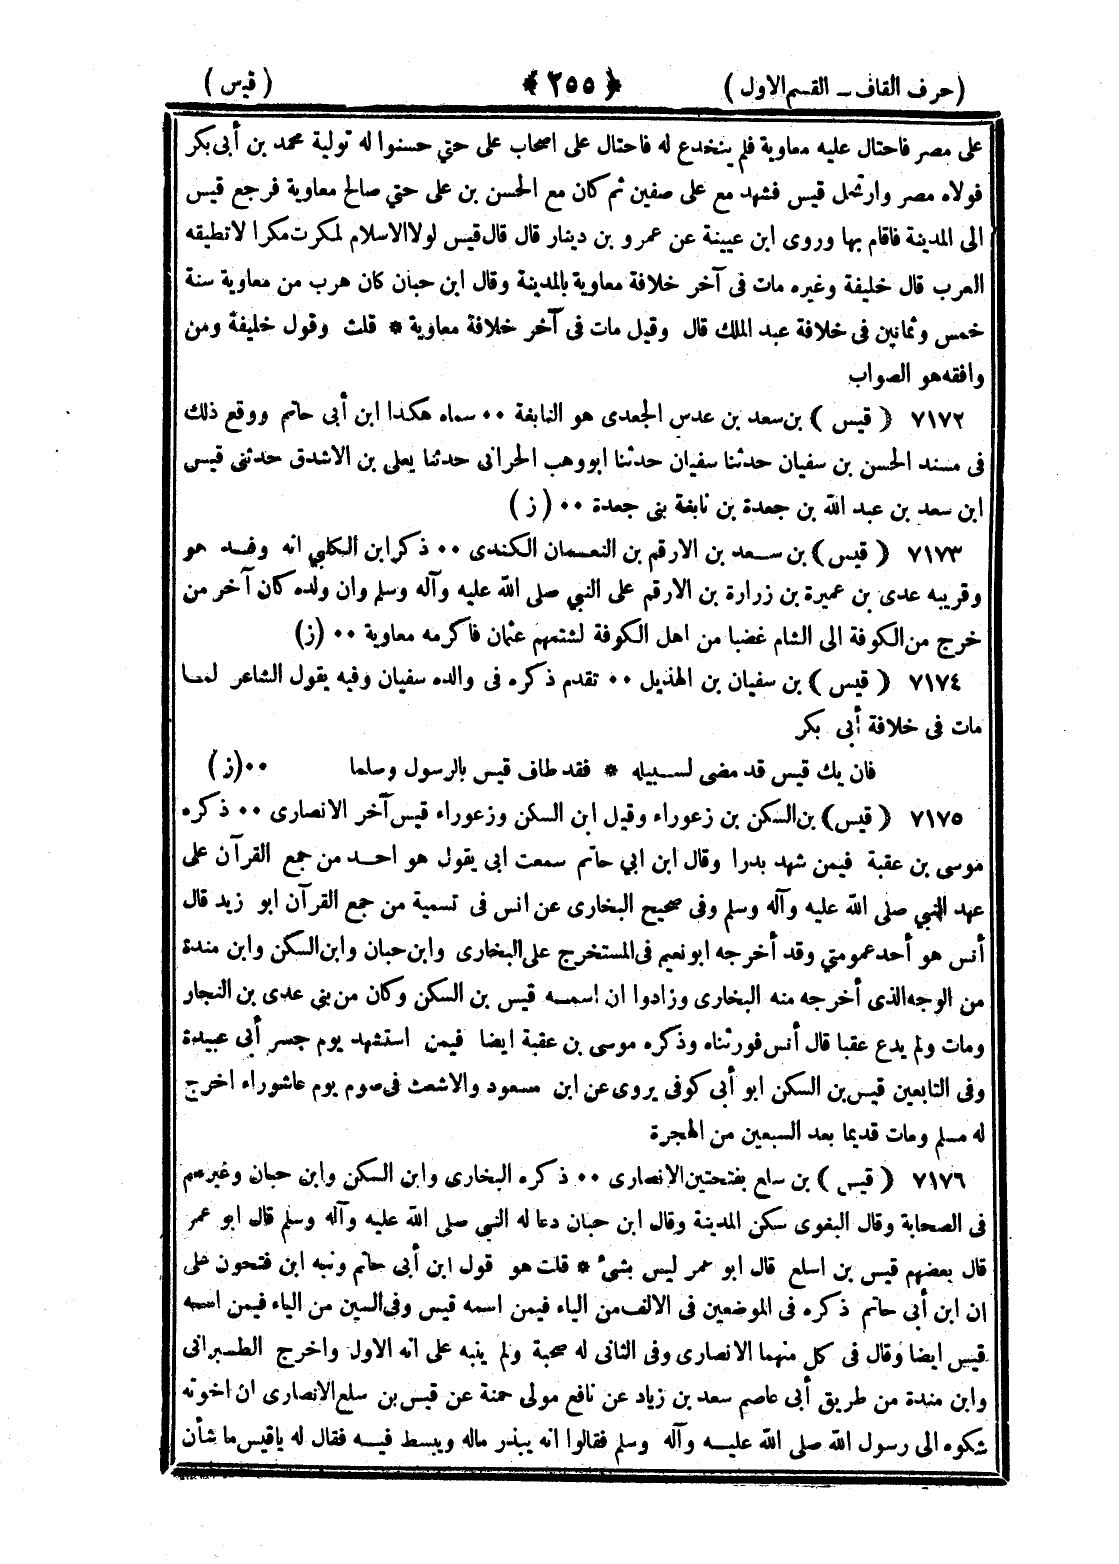 (حرف القاف ـ القسم الاول) ﴿٢٥٥﴾ (قيس)
على مصر فاحتال عليه معاوية فلم ينخدع له فاحتال على اصحاب على حتي حسنوا له تولية محمد بن أبى بكر
فولاه مصر وارتحل قيس فشهد مع على صفين ثم كان مع الحسن بن على حتي صالح معاوية فرجع قيس
الى المدينة فاقام بها وروى ابن عيينة عن عمرو بن دينار قال قال قيس لولا الاسلام لمكرت مكرا لا تطيقه
العرب قال خليفة وغيره مات فى آخر خلافة معاوية بالمدينة وقال ابن حبان كان هرب من معاوية سنة
خمس وثمانين فى خلافة عبد الملك قال وقيل مات فى آخر خلافة معاوية * قلت وقول خليفة ومن
وافقه هو الصواب
٧١٧٢ (قيس) بن سعد بن عدس الجعدى هو النابغة ٠٠ سماه هكذا ابن أبى حاتم ووقع ذلك
فى مسند الحسن بن سفيان حدثنا سفيان حدثنا ابو وهب الحرانى حدثنا يعلى بن الاشدق حدثنى قيس
ابن سعد بن عبد الله بن جعدة بن نابغة بنى جعدة ٠٠ (ز)
٧١٧٣ (قيس) بن سعد بن الارقم بن النعمان الكندى ٠٠ ذكر ابن الكلبي انه وفد هو
وقريبه عدى بن عميرة بن زرارة بن الارقم على النبي صلى الله عليه وآله وسلم وان ولده كان آخر من
خرج من الكوفة الى الشام غضبا من اهل الكوفة لشتمهم عثمان فاكرمه معاوية ٠٠ (ز)
٧١٧٤ (قيس) بن سفيان بن الهذيل ٠٠ تقدم ذكره فى والده سفيان وفيه يقول الشاعر لما
مات فى خلافة أبى بكر
فان يك قيس قد مضى لسبيله * فقد طاف قيس بالرسول وسلما ٠٠(ز)
٧١٧٥ (قيس) بن السكن بن زعوراء وقيل ابن السكن وزعوراء قيس آخر الانصارى ٠٠ ذكره
موسى بن عقبة فيمن شهد بدرا وقال ابن ابي حاتم سمعت ابى يقول هو احد من جمع القرآن على
عهد النبي صلى الله عليه وآله وسلم وفى صحيح البخارى عن انس فى تسمية من جمع القرآن ابو زيد قال
أنس هو أحد عمومتي وقد أخرجه ابو نعيم فى المستخرج على البخارى وابن حبان وابن السكن وابن مندة
من الوجه الذى أخرجه منه البخارى وزادوا ان اسمه قيس بن السكن وكان من بني عدى بن النجار
ومات ولم يدع عقبا قال أنس فورثناه وذكره موسى بن عقبة ايضا فيمن استشهد يوم جسر أبى عبيدة
وفى التابعين قيس بن السكن ابو أبى كوفى يروى عن ابن مسعود والاشعث فى صوم يوم عاشوراء اخرج
له مسلم ومات قديما بعد السبعين من الهجرة
٧١٧٦ (قيس) بن سلع بفتحتين الانصارى ٠٠ ذكره البخارى وابن السكن وابن حبان وغيرهم
فى الصحابة وقال البغوى سكن المدينة وقال ابن حبان دعا له النبي صلى الله عليه وآله وسلم قال ابو عمر
قال بعضهم قيس بن اسلع قال ابو عمر ليس بشئ * قلت هو قول ابن أبى حاتم ونبه ابن فتحون على
ان ابن أبى حاتم ذكره فى الموضعين فى الالف من الياء فيمن اسمه قيس وفى السين من الياء فيمن اسمه
قيس ايضا وقال فى كل منهما الانصارى وفى الثانى له صحبة ولم ينبه على انه الاول واخرج الطبرانى
وابن مندة من طريق أبى عاصم سعد بن زياد عن نافع مولى حمنة عن قيس بن سلع الانصارى ان اخوته
شكوه الى رسول الله صلى الله عليه وآله وسلم فقالوا انه يبذر ماله ويبسط فيه فقال له ياقيس ما شأن